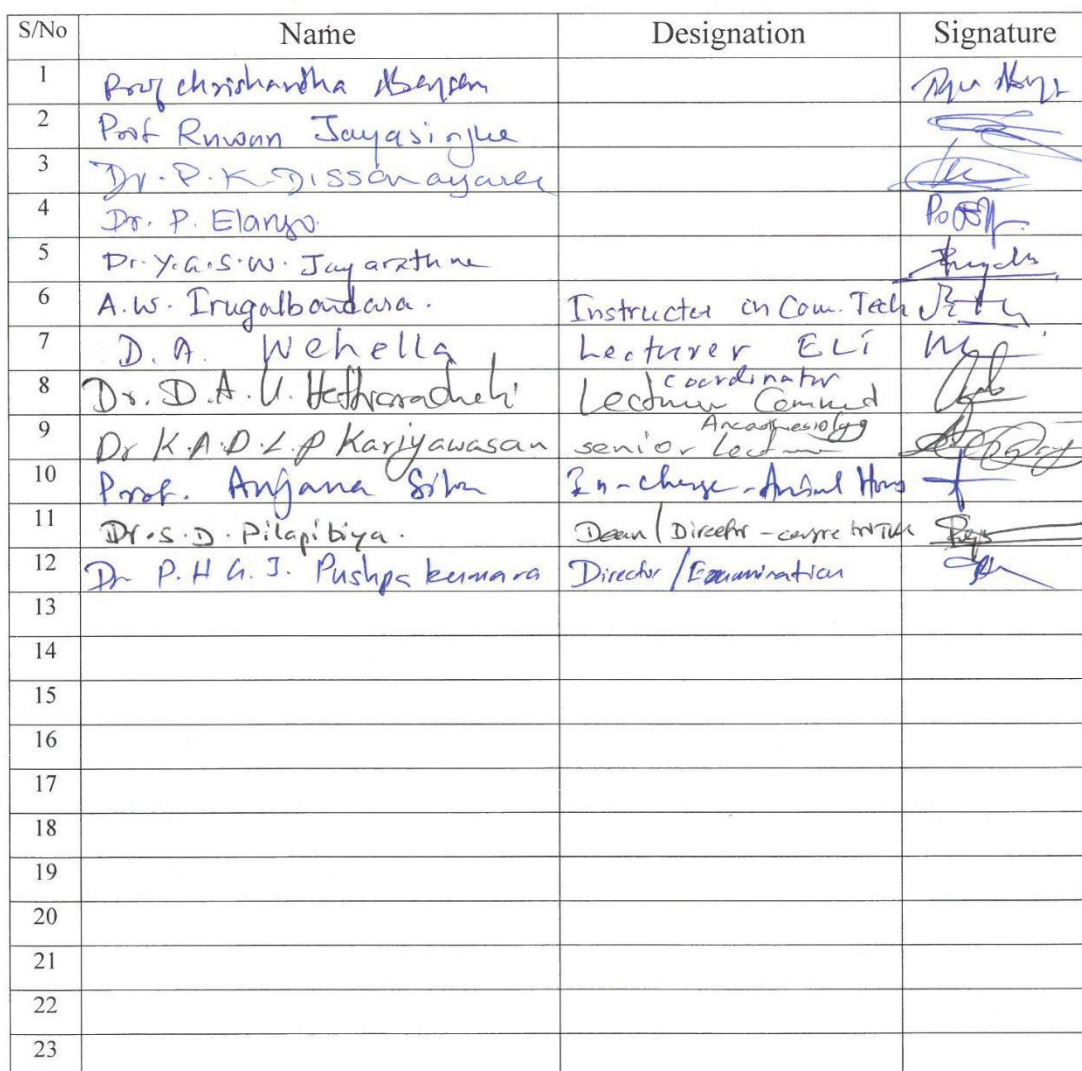 S/No Name Designation Signature
1 Prof Chrishantha Abeysen
2 Prof Ruwan Jayasinghe
3 Dr. P. K. Dissanayake
4 Dr. P. Elango
5 Dr. Y.G.S.W. Jayarathne
6 A.W. Irugalbandara. Instructor in Com. Tech
7 D. A. Wehella Lecturer ELI
coordinator
8 Dr. D. A. U. Hettiarachchi Lecturer Commed
Anaesthesiology
9 Dr K.A.D.L.P Kariyawasan senior Lecturer
10 Prof. Anjana Silva In-charge - Animal House
11 Dr. S. D. Pilapitiya. Dean / Director -
12 Dr P. H G. J. Pushpakumara Director / Examination
13
14
15
16
17
18
19
20
21
22
23